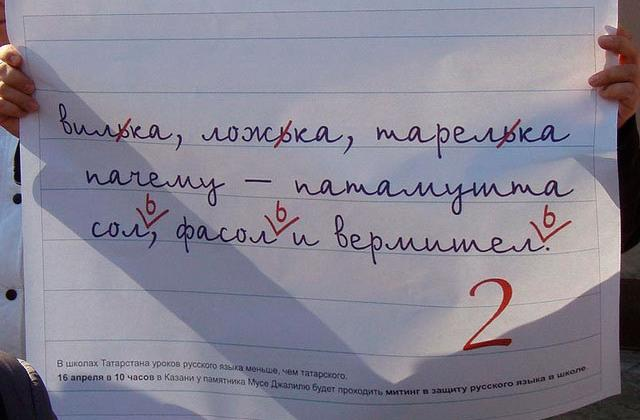 вилька, ложька, тарелька
пачему — патамушта
сол, фасол и вермишел.
ь ь ь
2
В школах Татарстана уроков русского языка меньше, чем татарского.
16 апреля в 10 часов в Казани у памятника Мусе Джалилю будет проходить митинг в защиту русского языка в школе.